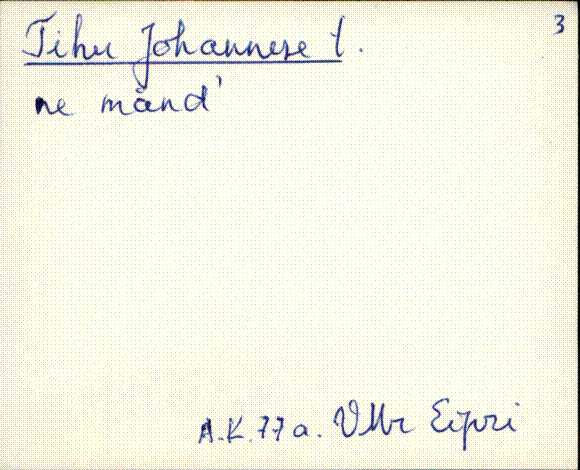 3
Tihu Johannese t.
ne mänd'
A.K. 77 a. VMr Eipri